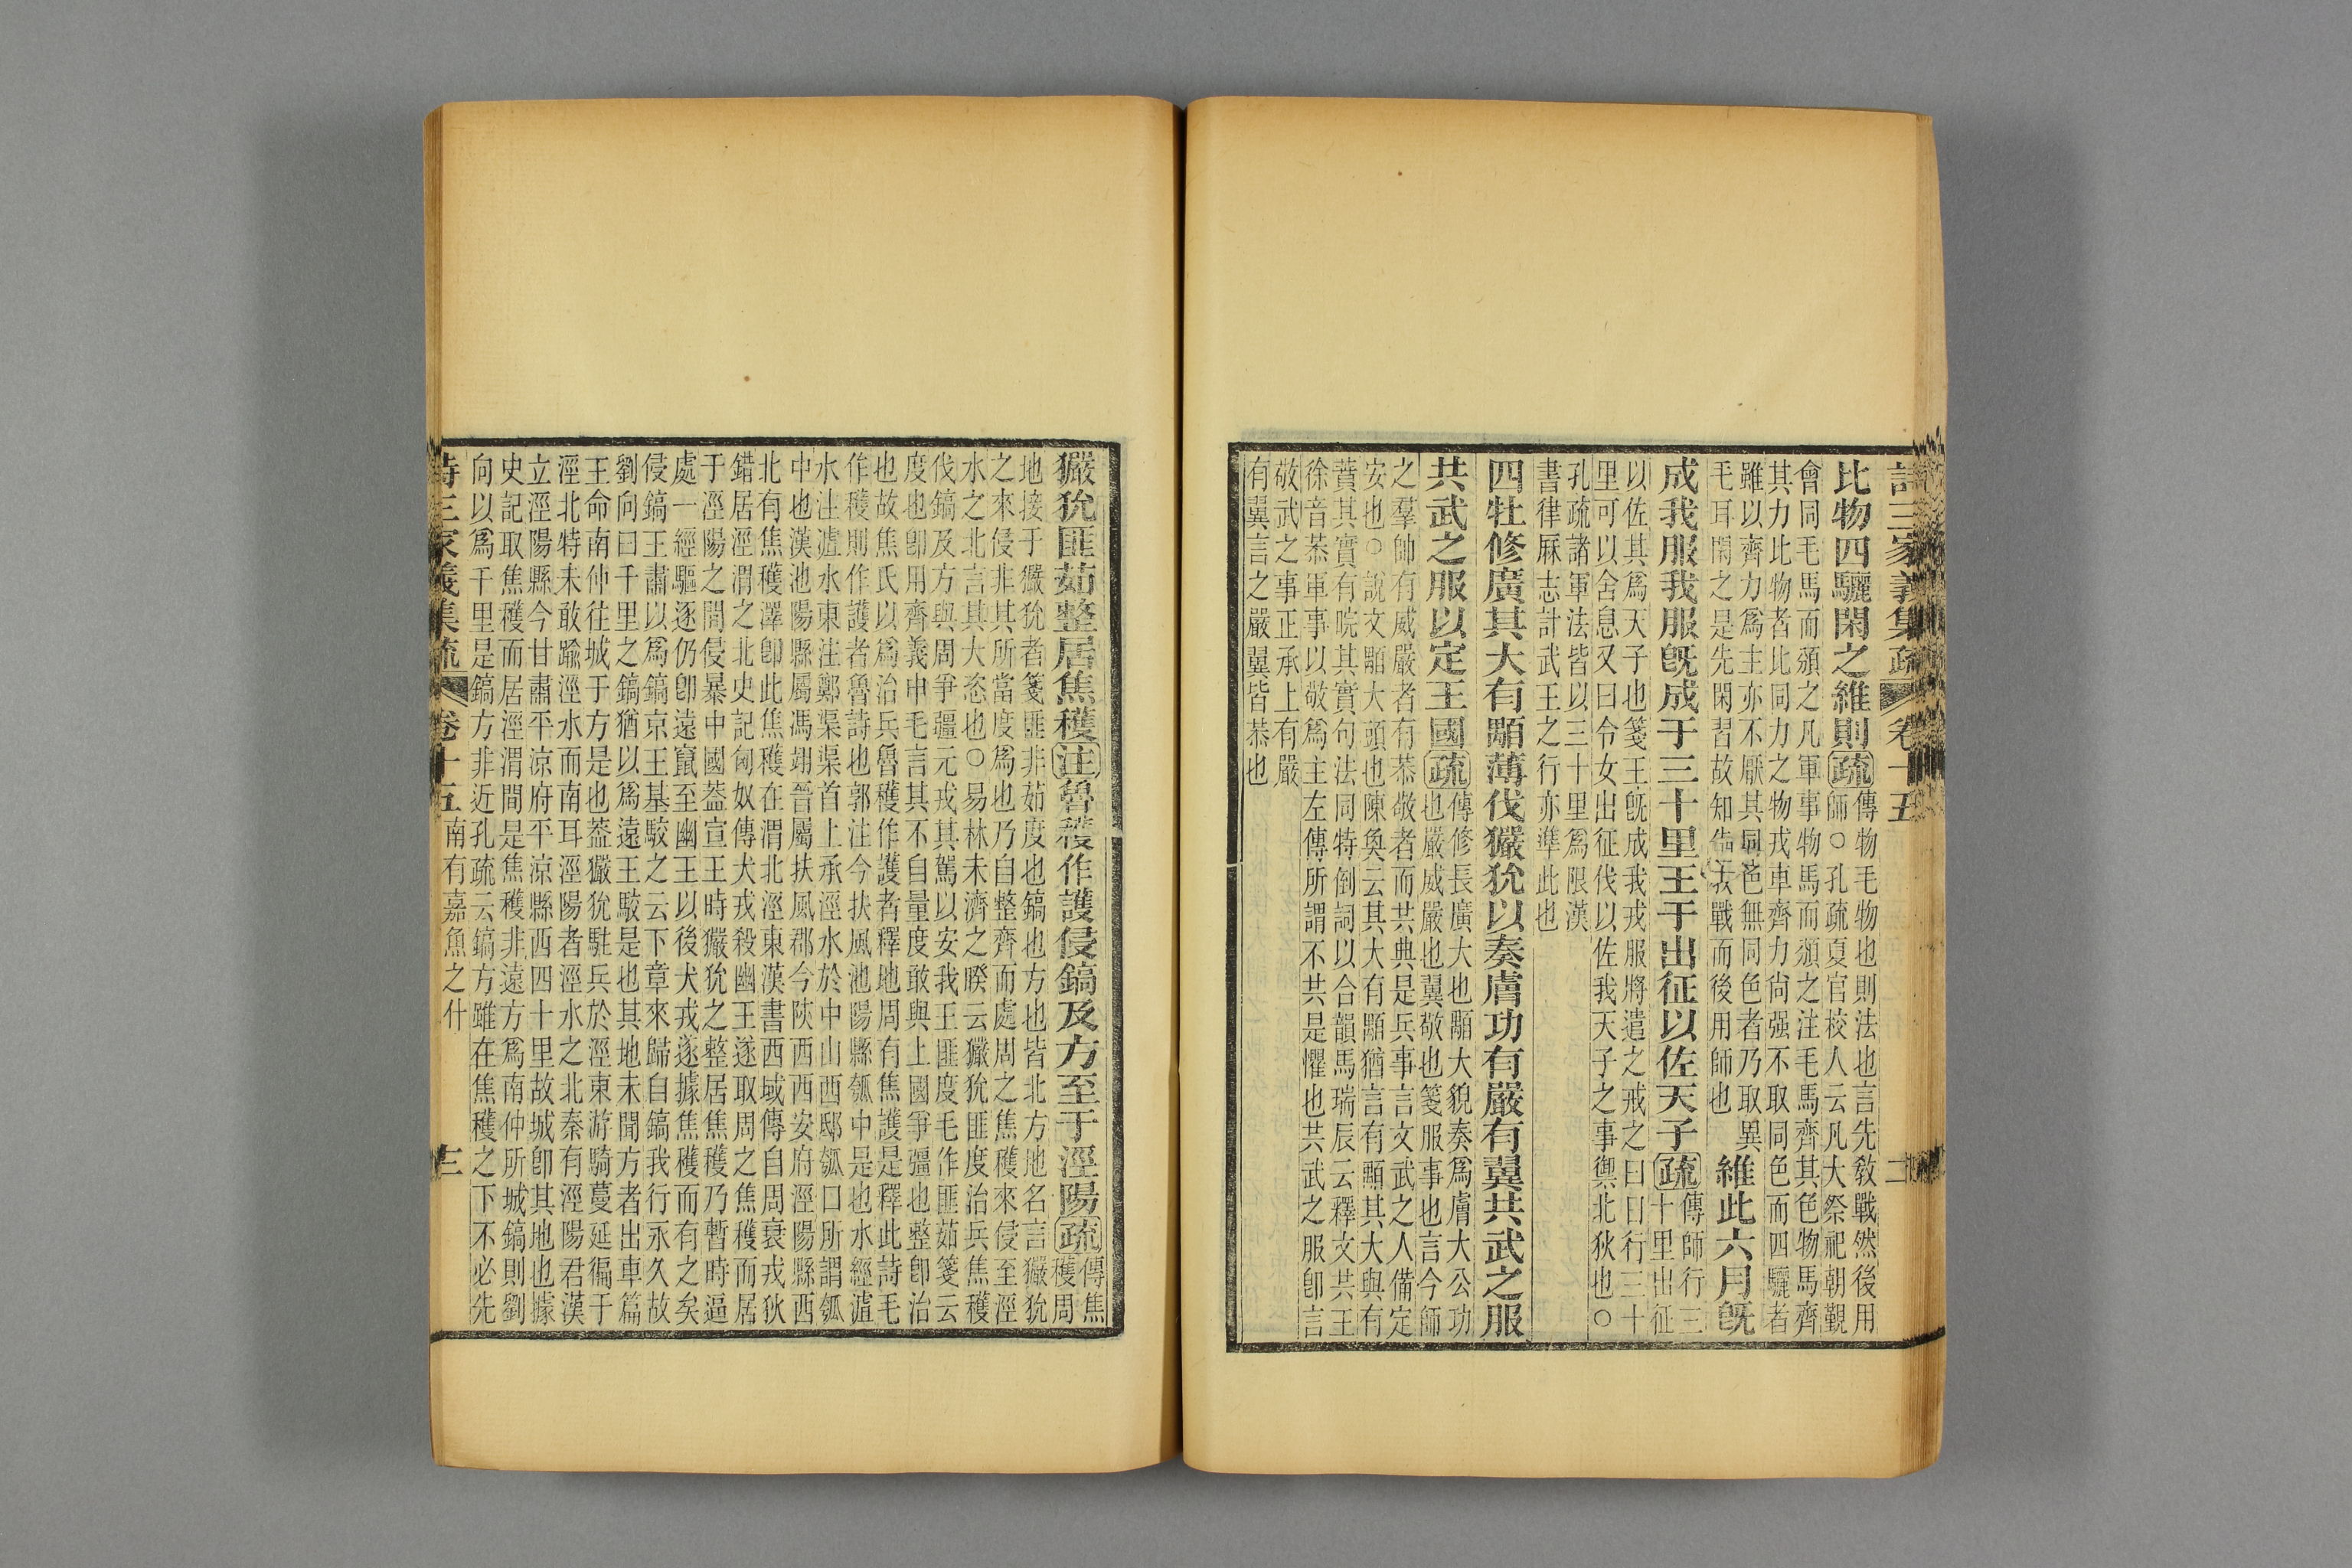 詩三家義集疏 卷十五 二
比物四驪閑之維則疏傳物毛物也則法也言先敎戰然後用
師○孔疏夏官校人云凡大祭祀朝覲
會同毛馬而頒之凡軍事物馬而頒之注毛馬齊其色物馬齊
其力比物者比同力之物戎車齊力尙强不取同色而四驪者
雖以齊力爲主亦不厭其同色無同色者乃取異
毛耳閑之是先閑習故知先敎戰而後用師也
維此六月旣
成我服我服旣成于三十里王于出征以佐天子疏傳師行三
十里出征
以佐其爲天子也箋王旣成我戎服將遣之戒之曰日行三十
里可以舍息又曰令女出征伐以佐我天子之事禦北狄也○
孔疏諸軍法皆以三十里爲限漢
書律厤志計武王之行亦準此也
四牡修廣其大有顒薄伐玁狁以奏膚功有嚴有翼共武之服
共武之服以定王國疏傳修長廣大也顒大貌奏爲膚大公功
也嚴威嚴也翼敬也箋服事也言今師
之羣帥有威嚴者有恭敬者而共典是兵事言文武之人備定
安也○說文顒大頭也陳奐云其大有顒猶言有顒其大與有
蕡其實有睆其實句法同特倒詞以合韻馬瑞辰云釋文共王
徐音恭軍事以敬爲主左傳所謂不共是懼也共武之服卽言
敬武之事正承上有嚴
有翼言之嚴翼皆恭也
玁狁匪茹整居焦穫注魯穫作護侵鎬及方至于涇陽疏傳焦
穫周
地接于玁狁者箋匪非茹度也鎬也方也皆北方地名言玁狁
之來侵非其所當度爲也乃自整齊而處周之焦穫來侵至涇
水之北言其大恣也○易林未濟之睽云玁狁匪度治兵焦穫
伐鎬及方與周爭疆元戎其駕以安我王匪度毛作匪茹箋云
度也卽用齊義申毛言其不自量度敢與上國爭疆也整卽治
也故焦氏以爲治兵魯穫作護者釋地周有焦護是釋此詩毛
作穫則作護者魯詩也郭注今扶風池陽縣瓠中是也水經滻
水注瀘水東注鄭渠渠首上承涇水於中山西邸瓠口所謂瓠
中也漢池陽縣屬馮翊晉屬扶風郡今陜西西安府涇陽縣西
北有焦穫澤卽此焦穫在渭北涇東漢書西域傳自周衰戎狄
錯居涇渭之北史記匈奴傳犬戎殺幽王遂取周之焦穫而居
于涇陽之間侵暴中國葢宣王時玁狁之整居焦穫乃暫時逼
處一經驅逐仍卽遠竄至幽王以後犬戎遂據焦穫而有之矣
侵鎬王肅以爲鎬京王基駮之云下章來歸自鎬我行永久故
劉向曰千里之鎬猶以爲遠王駮是也其地未聞方者出車篇
王命南仲往城于方是也葢玁狁駐兵於涇東游騎蔓延徧于
涇北特未敢踰涇水而南耳涇陽者涇水之北秦有涇陽君漢
立涇陽縣今甘肅平涼府平涼縣西四十里故城卽其地也據
史記取焦穫而居涇渭間是焦穫非遠方爲南仲所城鎬則劉
向以爲千里是鎬方非近孔疏云鎬方雖在焦穫之下不必先
詩三家義集疏 卷十五 南有嘉魚之什 三